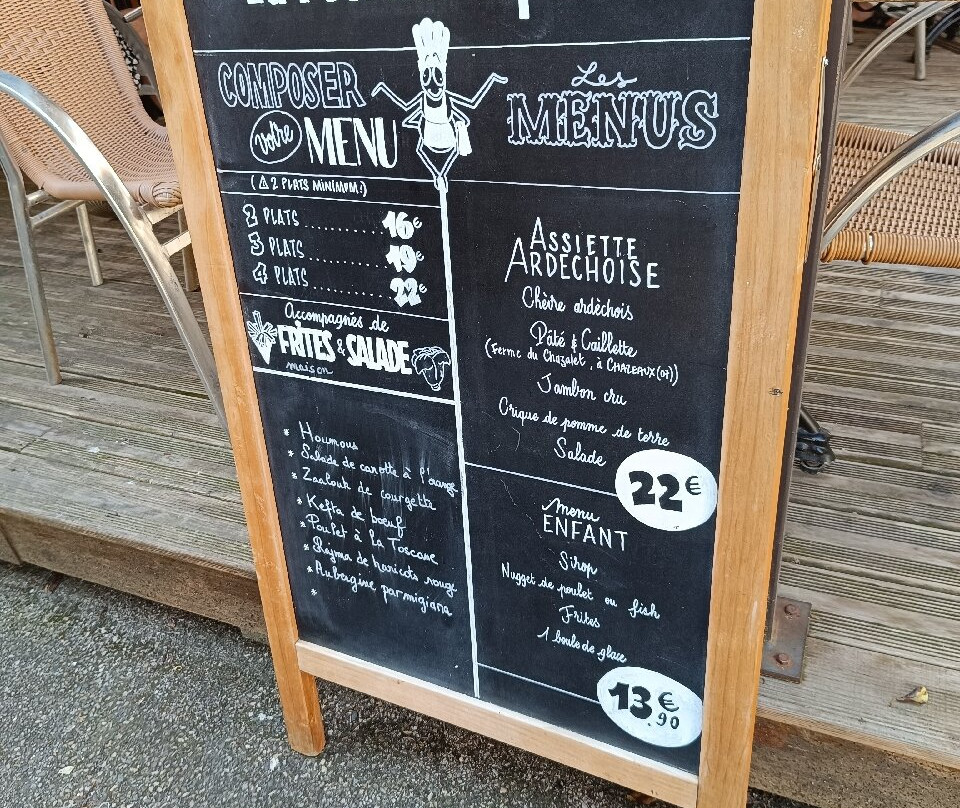 COMPOSER
votre MENU
(⚠ 2 PLATS MINIMUM!)
2 PLATS .......... 16€
3 PLATS .......... 19€
4 PLATS .......... 22€
Accompagnés de
FRITES & SALADE
maison
* Houmous
* Salade de carotte à l'orange
* Zaalouk de courgette
* Kefta de boeuf
* Poulet à la Toscane
* Rajma de haricots rouge
* Aubergine parmigiana
*
Les
MENUS
ASSIETTE
ARDECHOISE
Chèvre ardèchois
Pâté & Caillette
(Ferme du Chazalet, à CHAZEAUX (07))
Jambon cru
Crique de pomme de terre
Salade
22€
menu
ENFANT
Sirop
Nugget de poulet ou fish
Frites
1 boule de glace
13€.90